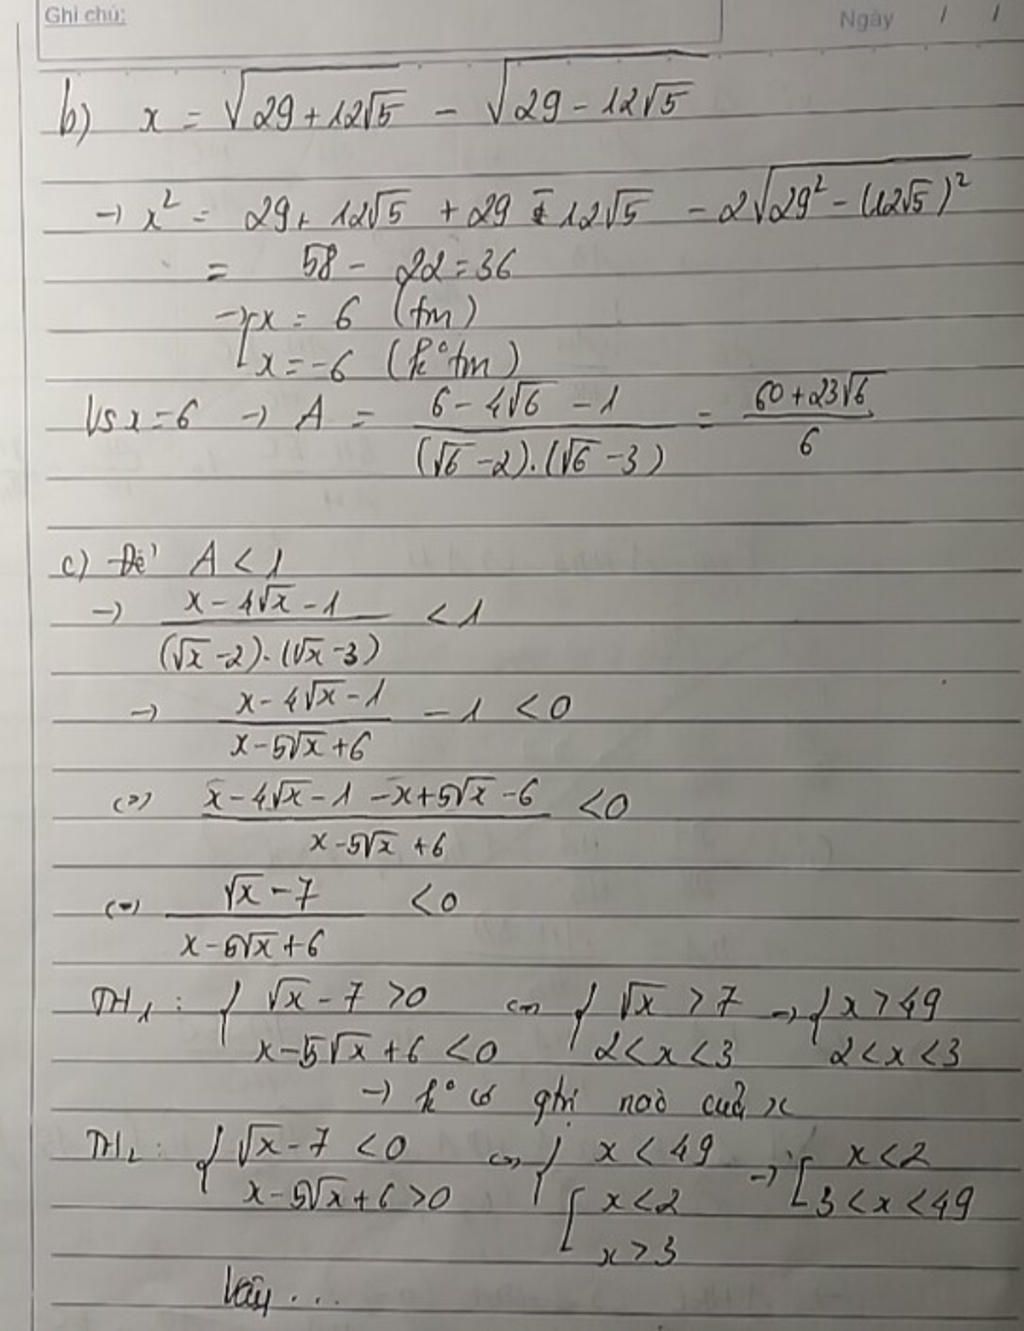 Ghi chú:
Ngày / /
b) x = √(29 + 12√5) - √(29 - 12√5)
→ x² = 29 + 12√5 + 29 - 12√5 - 2√(29² - (12√5)²)
= 58 - 22 = 36
→ [ x = 6 (tm)
x = -6 (k° tm)
Vs x = 6 → A = (6 - 4√6 - 1)/((√6 - 2).(√6 - 3)) = (60 + 23√6)/6
c) Để A < 1
→ (x - 4√x - 1)/((√x - 2).(√x - 3)) < 1
→ (x - 4√x - 1)/(x - 5√x + 6) - 1 < 0
(=) (x - 4√x - 1 - x + 5√x - 6)/(x - 5√x + 6) < 0
(=) (√x - 7)/(x - 5√x + 6) < 0
TH₁ : { √x - 7 > 0 ⇔ { √x > 7 → { x > 49
x - 5√x + 6 < 0 2 < x < 3 2 < x < 3
→ k° có gtrị nào của x
TH₂ : { √x - 7 < 0 ⇔ { x < 49 → [ x < 2
x - 5√x + 6 > 0 [ x < 2 3 < x < 49
x > 3
Vậy ...